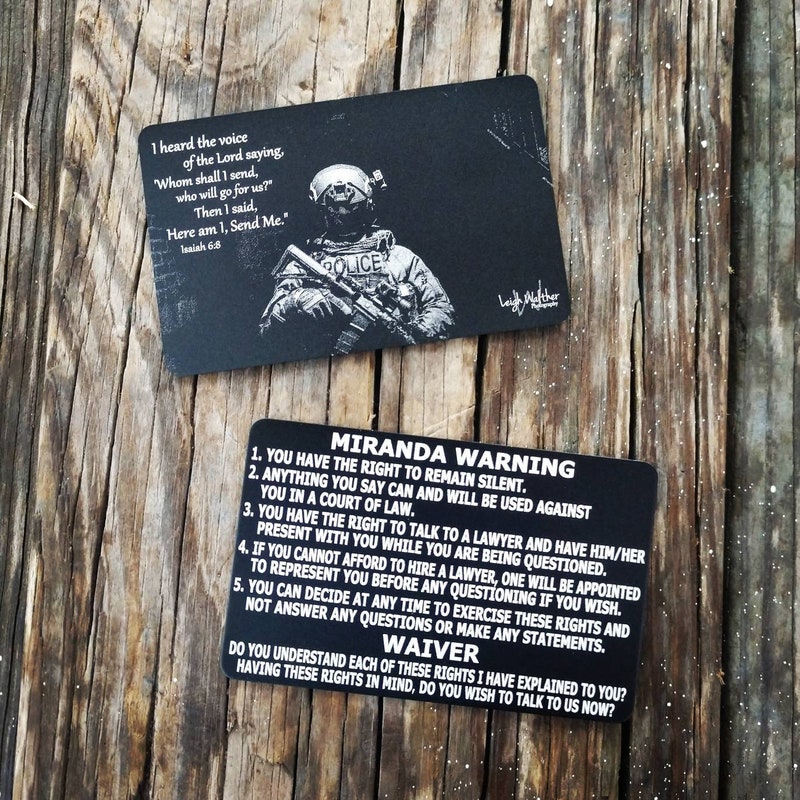 I heard the voice
of the Lord saying,
"Whom shall I send,
who will go for us?"
Then I said,
Here am I, Send Me."
Isaiah 6:8
POLICE
Leigh Walther
Photography
MIRANDA WARNING
1. YOU HAVE THE RIGHT TO REMAIN SILENT.
2. ANYTHING YOU SAY CAN AND WILL BE USED AGAINST
YOU IN A COURT OF LAW.
3. YOU HAVE THE RIGHT TO TALK TO A LAWYER AND HAVE HIM/HER
PRESENT WITH YOU WHILE YOU ARE BEING QUESTIONED.
4. IF YOU CANNOT AFFORD TO HIRE A LAWYER, ONE WILL BE APPOINTED
TO REPRESENT YOU BEFORE ANY QUESTIONING IF YOU WISH.
5. YOU CAN DECIDE AT ANY TIME TO EXERCISE THESE RIGHTS AND
NOT ANSWER ANY QUESTIONS OR MAKE ANY STATEMENTS.
WAIVER
DO YOU UNDERSTAND EACH OF THESE RIGHTS I HAVE EXPLAINED TO YOU?
HAVING THESE RIGHTS IN MIND, DO YOU WISH TO TALK TO US NOW?